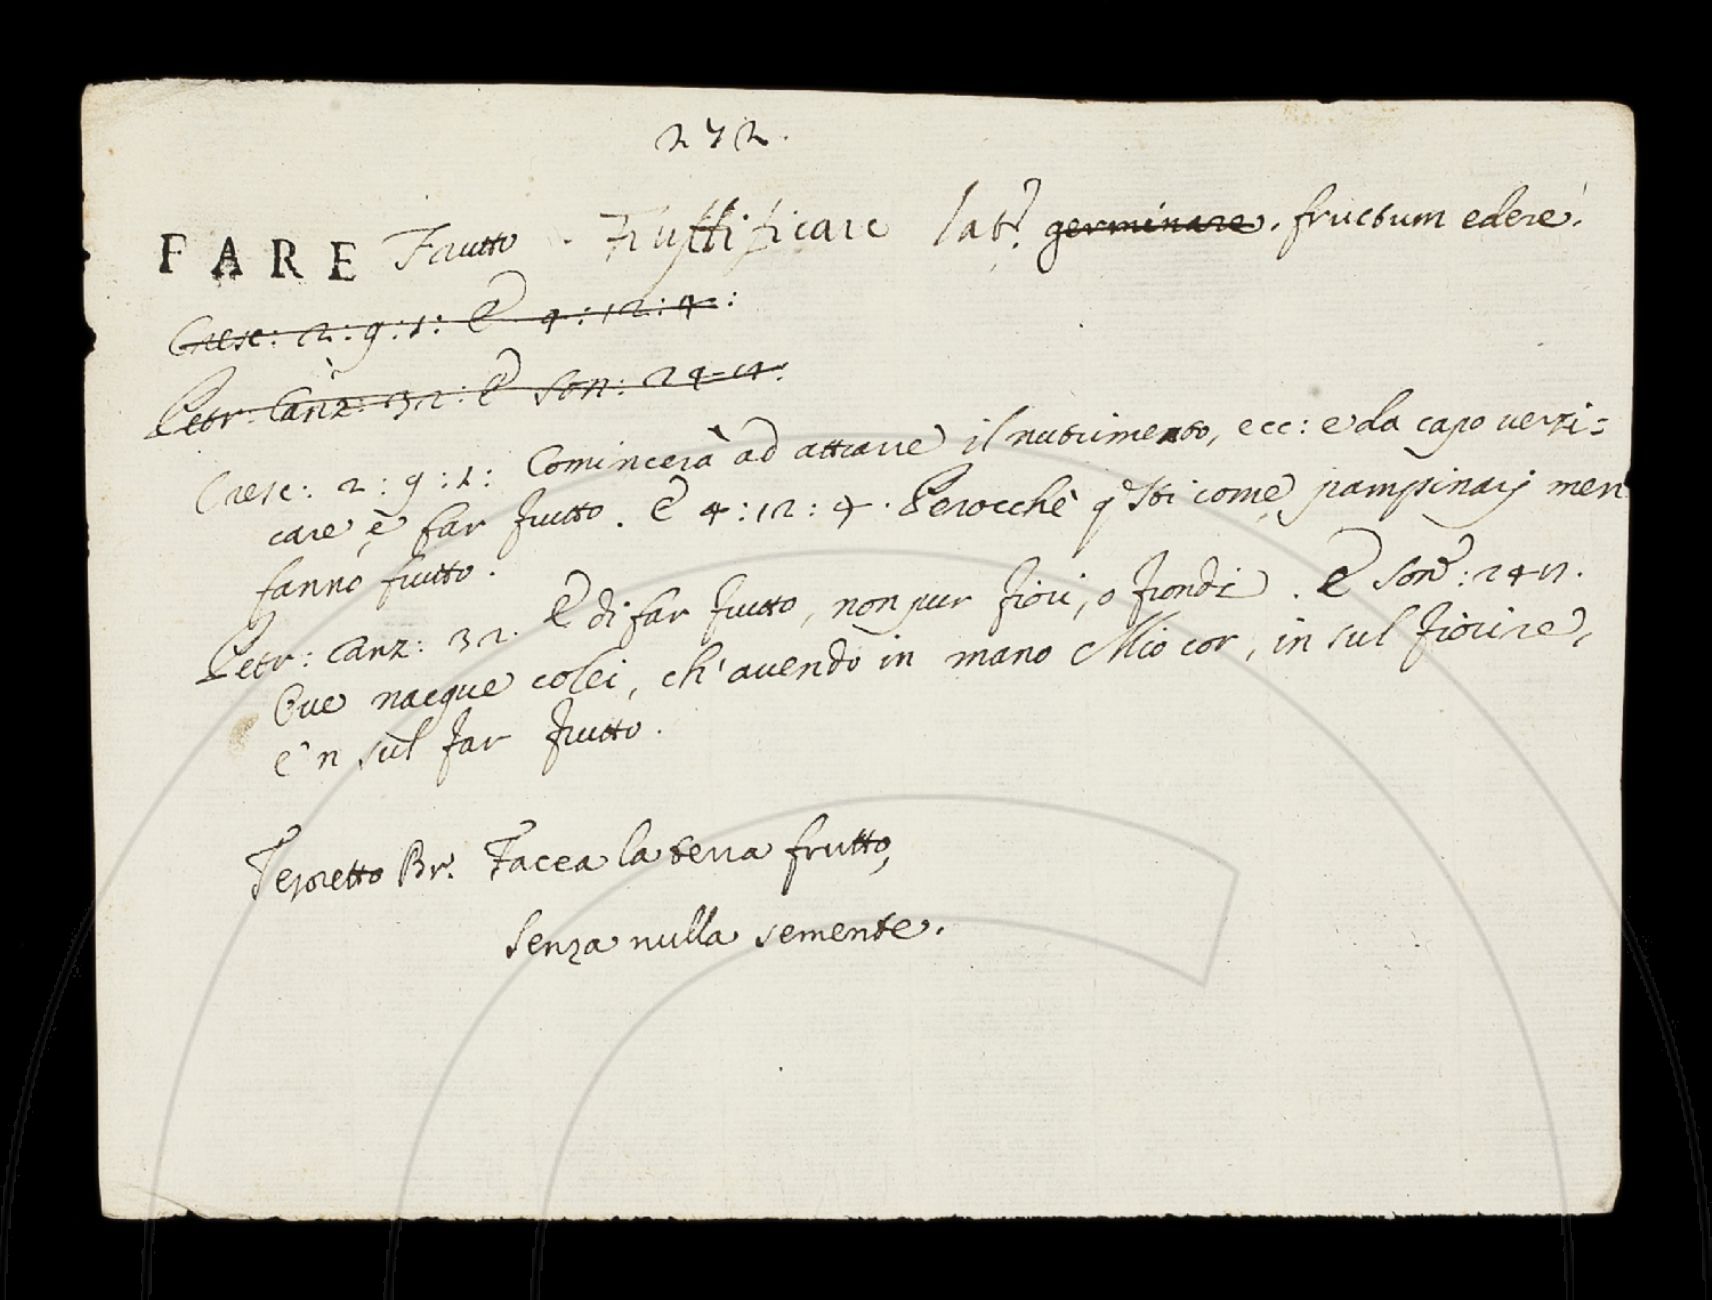 272.
FARE Frutto. Fruttificare Lat. germinare. fructum edere.
Cresc: 2:9:1: E 4:12:4:
Petr: Canz: 32: E Son:
Cresc: 2:9:1: Comincerà ad attrarre il nutrimento, ecc: e da capo verzi=
care, e far frutto. E 4:12:4. Perocchè q.sti come pampinarj men
fanno frutto.
Petr: Canz: 32. E di far frutto, non pur fiori, o frondi. E Son:
Ove nacque colei, ch'avendo in mano Mio cor, in sul fiorire,
e'n sul far frutto.
Tesoretto Br. Facea la terra frutto,
Senza nulla semente.